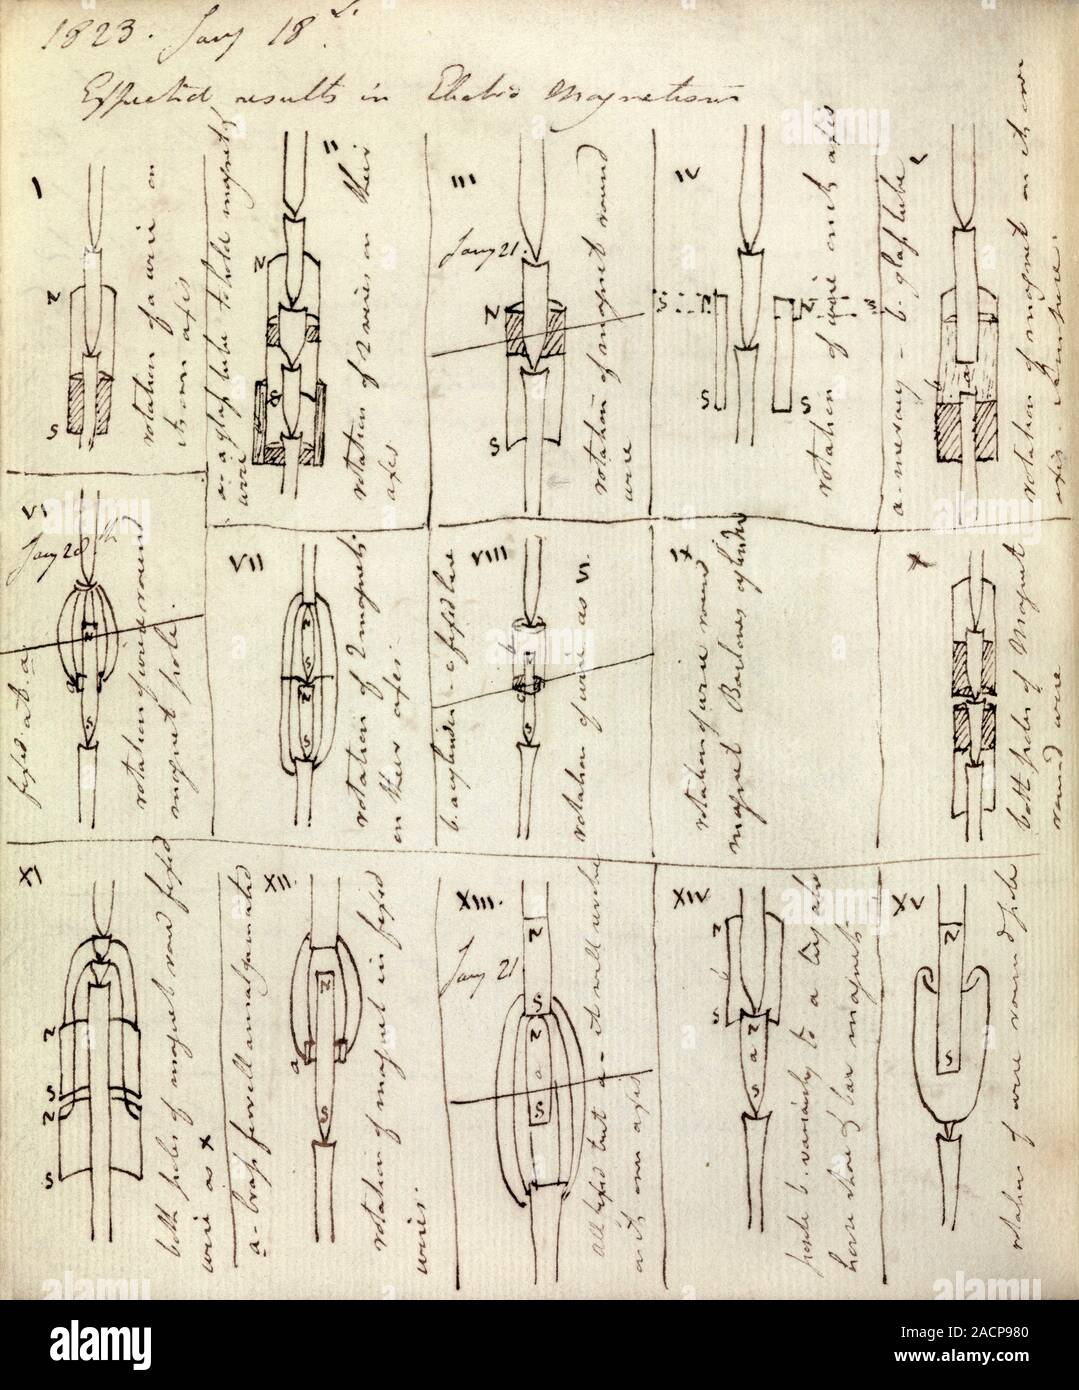 1823. Jany 18th.
Expected results in Electro Magnetism
I
N
S
rotation of a wire on
its own axis
a - a glass tube to hold magnets
wire
II
N
S
a
rotation of 2 wires on their
axes
III
Jany 21.
N
S
rotation of magnet round
wire
IV
S N N S
S S
rotation of wire on its axis
a - mercury - b. glass tube
V
b a
rotation of magnet on its own
axis.
VI
Jany 20th
N
a
S
fixed at a.
rotation of wire round
magnet pole.
VII
N
S
N
S
rotation of 2 magnets
on their axes.
b. a cylinder - c fixed here
VIII
b
a
c
S
rotation of wire as VI.
IX
rotation of wire round
magnet Barlow's cylinder
X
both poles of Magnet
round wire
XI
N
S
N
S
both poles of magnet round fixed
wire as X
a - brass ferrell amalgamated
XII
N
a
S
rotation of magnet in fixed
wires.
XIII.
Jany 21
N
S
N
a
S
all fixed but a - it will revolve
on its own axis
XIV
N
b
S
N
a
S
horse shoe of bar magnets
XV
N
S
rotation of wire round pole
alamy
Image ID: 2ACP980
www.alamy.com